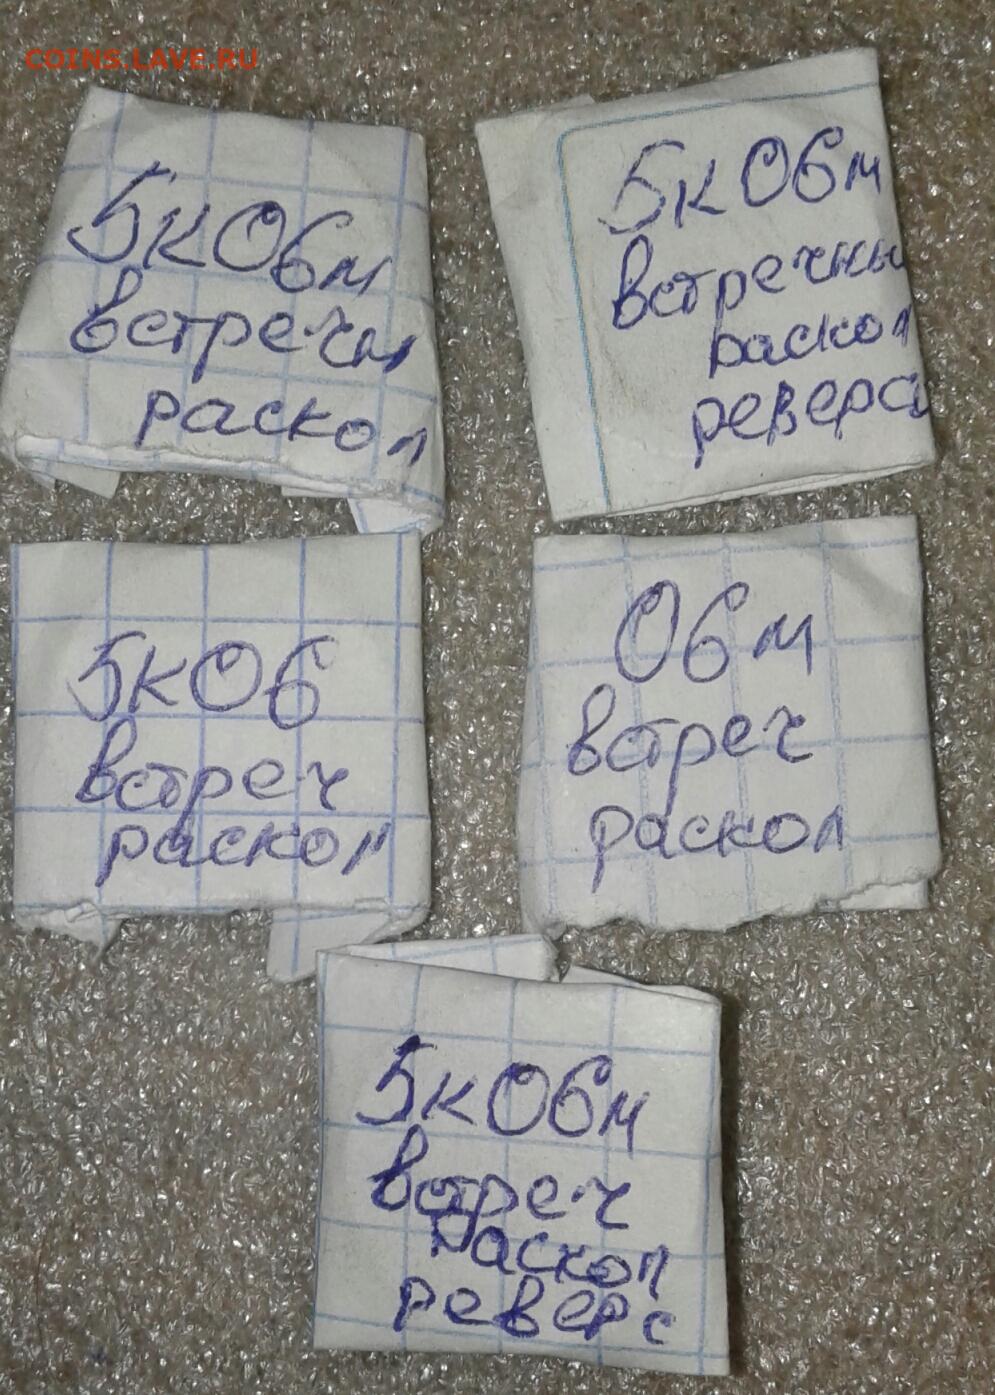 COINS.LAVE.RU
5к06м
встречн
раскол
5к 06м
встречны
раскол
реверса
5к06
встреч
раскол
06м
встреч
раскол
5к06м
встреч
раскол
реверс